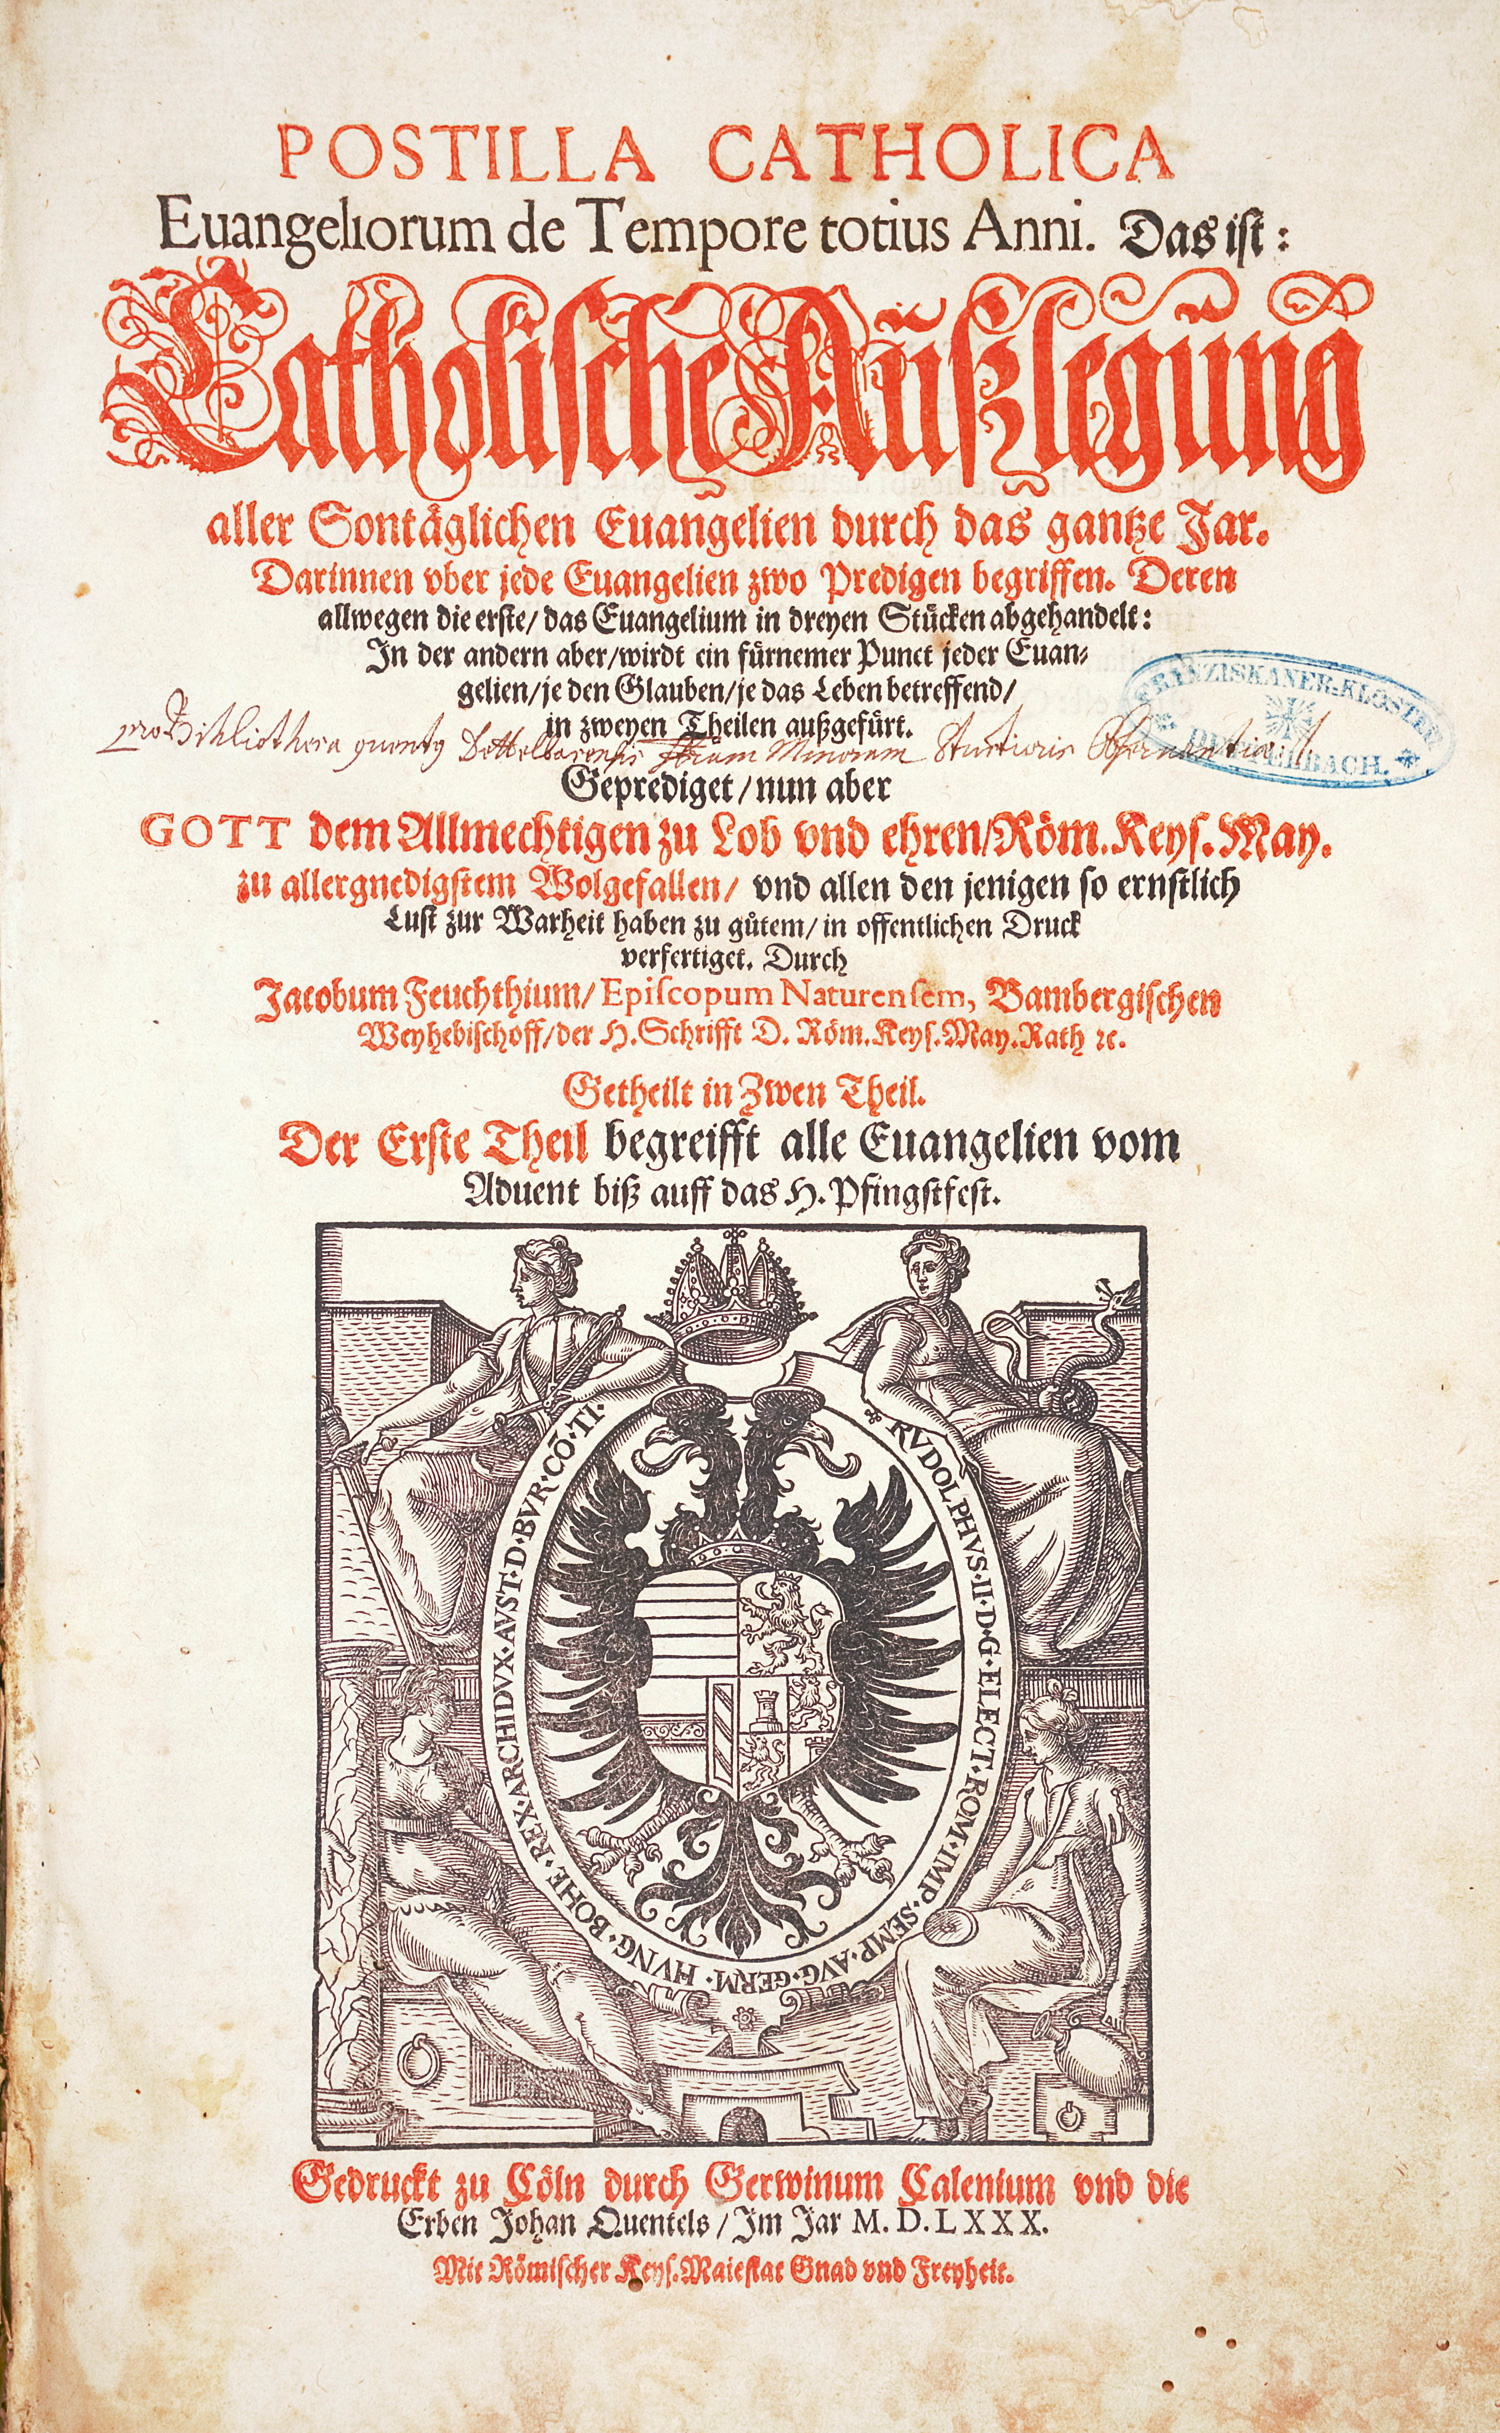 POSTILLA CATHOLICA
Euangeliorum de Tempore totius Anni. Das iſt:
Catholiſche Außlegung
aller Sontäglichen Euangelien durch das gantze Jar.
Darinnen vber jede Euangelien zwo Predigen begriffen. Deren
allwegen die erſte/ das Euangelium in dreyen Stücken abgehandelt:
In der andern aber/wirdt ein fürnemer Punct jeder Euan-
gelien/je den Glauben/je das Leben betreffend/
in zweyen Theilen außgefürt.
FRANZISKANER-KLOSTER
DETTELBACH.
pro Bibliotheca Dettelbacensi Minorum
Geprediget/nun aber
GOTT dem Allmechtigen zu Lob vnd ehren/Röm.Keyſ.May.
zu allergnedigſtem Wolgefallen/ vnd allen den jenigen ſo ernſtlich
Luſt zur Warheit haben zu gůtem/in offentlichen Druck
verfertiget. Durch
Jacobum Feuchthium/Epiſcopum Naturenſem, Bambergiſchen
Weyhebiſchoff/der H.Schrifft D. Röm.Keyſ.May.Rath ꝛc.
Getheilt in Zwen Theil.
Der Erſte Theil begreifft alle Euangelien vom
Aduent biß auff das H.Pfingſtfeſt.
RVDOLPHVS·II·D·G·ELECT·ROM·IMP·SEMP·AVG·GERM·HVNG·BOHE·REX·ARCHIDVX·AVST·D·BVR·CŌ·TI·
Gedruckt zu Cöln durch Gerwinum Calenium vnd die
Erben Johan Quentels/Im Jar M.D.LXXX.
Mit Römiſcher Keyſ.Maieſtat Gnad vnd Freyheit.